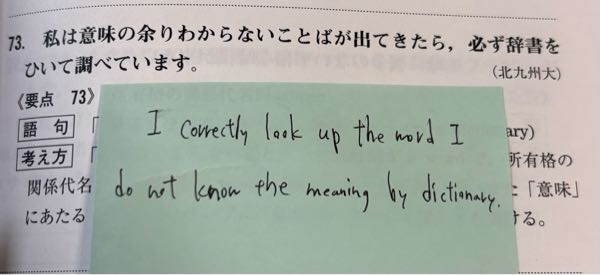 73. 私は意味の余りわからないことばが出てきたら，必ず辞書を
ひいて調べています。
（北九州大）
《要点 73》
語句 「
ary)
考え方 「
所有格の
関係代名
「意味」
にあたる
ける。
I correctly look up the word I
do not know the meaning by dictionary.